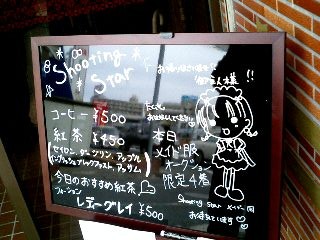 Shooting Star
お帰りなさいませ
御主人様 !!
コーヒー ¥500
紅茶 ¥450
(セイロン、ダージリン、アップル
イングリッシュブレックファスト、アッサム)
今日のおすすめ紅茶
フュージョン
レディーグレイ ¥500
本日
メイド服
オークション
限定4着
Shooting Star メイド一同
お待ちしています